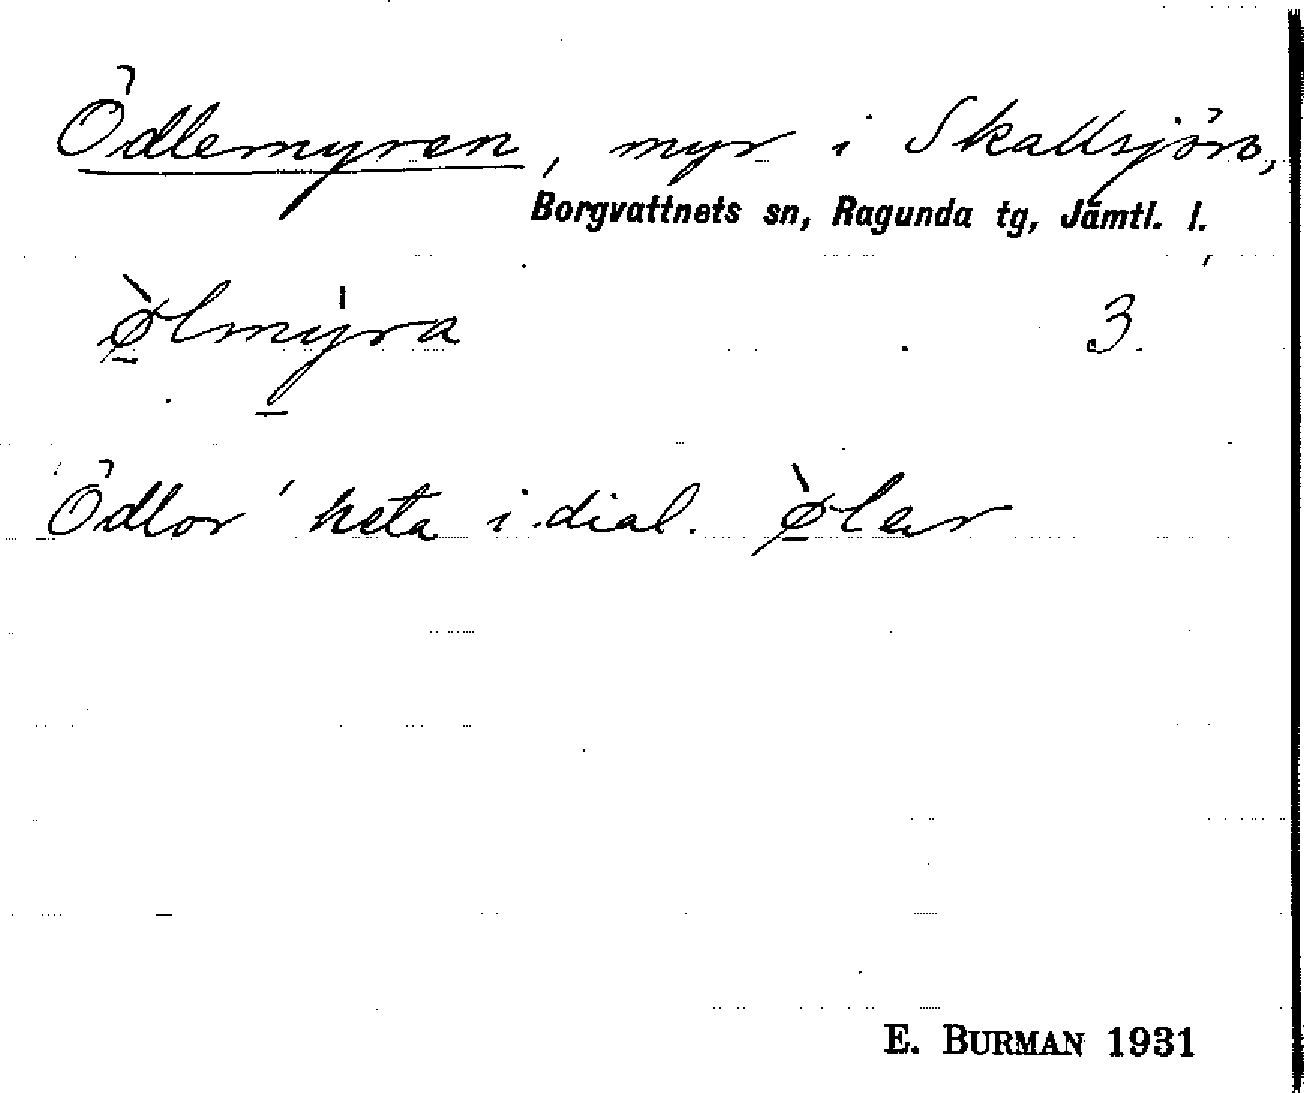 Ödlemyren, myr i Skallsjön,
Borgvattnets sn, Ragunda tg, Jämtl. l.
ø̀lmýra 3.
Ödlor heta i dial. ø̀lar
E. BURMAN 1931